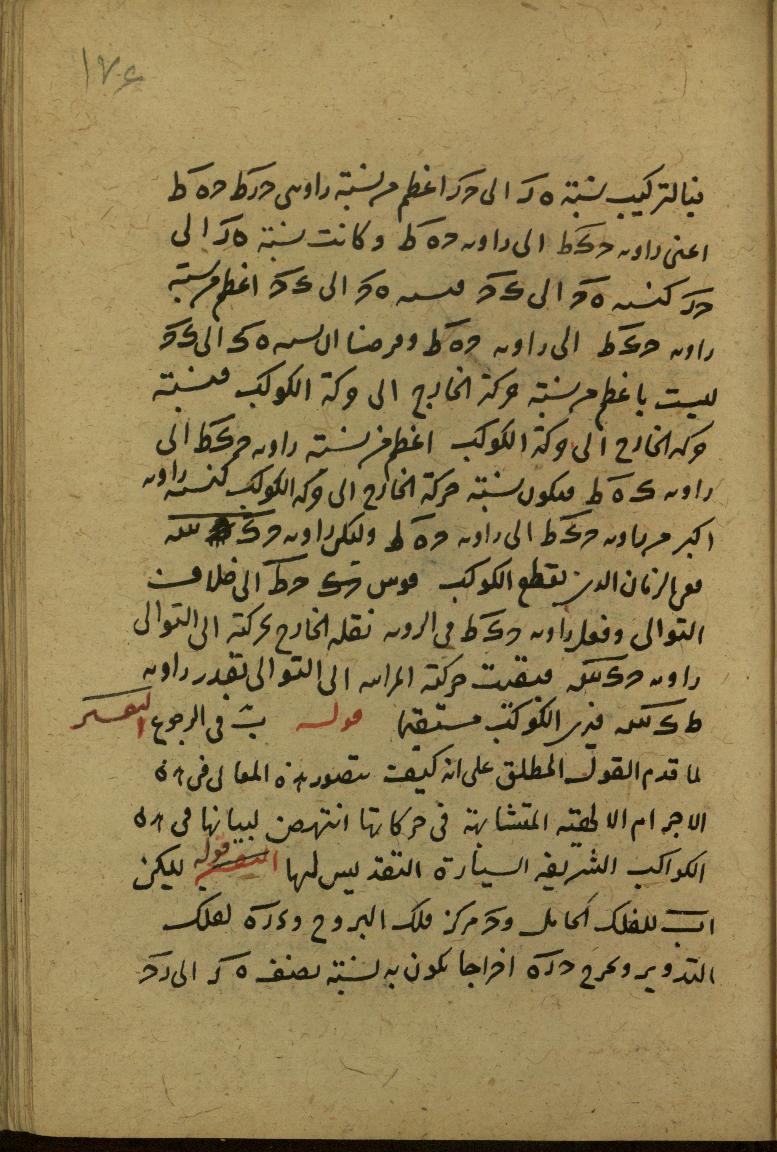 ١٧٤
فبالتركيب نسبة ه د الى ح د اعظم من نسبة زاويتى ح د ط ح ه ط
اعنى زاوية ح ك ط الى زاوية ح ه ط وكانت نسبة ه د الى
ح د كنسبة ه ح الى ك ح فنسبة ه ح الى ك ح اعظم من نسبة
زاوية ح ك ط الى زاوية ح ه ط وفرضنا ان نسبة ه ك الى ك ح
ليست باعظم من نسبة حركة الخارج الى حركة الكوكب فنسبة
حركة الخارج الى حركة الكوكب اعظم من نسبة زاوية ح ك ط الى
زاوية ك ه ط فيكون نسبة حركة الخارج الى حركة الكوكب كنسبة زاوية
اكبر من زاوية ح ك ط الى زاوية ح ه ط وليكن زاوية ح ك س
ففى الزمان الذى يقطع الكوكب قوس ح ط الى خلاف
التوالى وفعل زاوية ح ك ط فى الروية نقله الخارج بحركته الى التوالى
زاوية ح ك س فبقيت حركته المرئية الى التوالى بقدر زاوية
ط ك س فيرى الكوكب مستقيما قوله ب فى الرجوع التفسير
لما قدم القول المطلق على انه كيف يتصور هذه المعانى فى هذه
الاجرام الالهية المتشابهة فى حركاتها انتهض لبيانها فى هذه
الكواكب الشريفة السيارة التقد ليس لها التفسير قوله ليكن
ا ب للفلك الحامل و ح مركز فلك البروج و ء ر ه لفلك
التدوير ونخرج ح ر ه اخراجا يكون به نسبة نصف ه ر الى ر ح